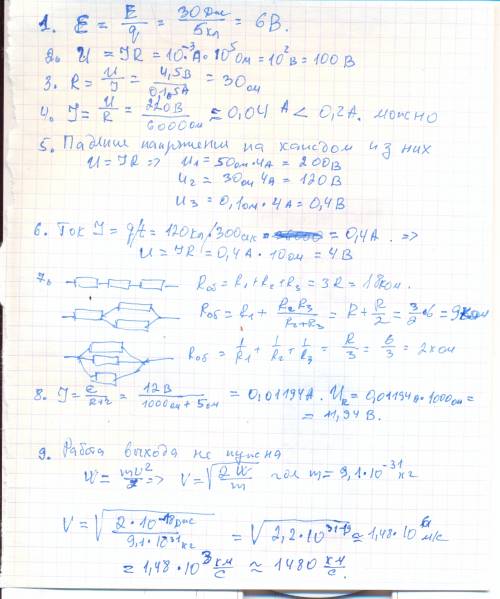 1. Ɛ = E/q = 30 Дж/5 кл = 6 В.
2. U = IR = 10⁻³ А · 10⁵ Ом = 10² В = 100 В
3. R = U/I = 4,5 В/0,15 А = 30 ом
4. I = U/R = 220 В/6000 ом ≈ 0,04 А < 0,2 А. можно
5. Падение напряжения на каждом из них
U = IR => U₁ = 50 ом · 4А = 200 В
U₂ = 30 ом 4А = 120 В
U₃ = 0,1 ом · 4А = 0,4 В
6. Ток I = q/t = 120 кл/300 сек = 0,4 А. =>
U = IR = 0,4 А · 10 ом = 4 В
7. Rоб = R₁ + R₂ + R₃ = 3R = 18 ком.
Rоб = R₁ + R₂R₃/R₂+R₃ = R + R/2 = 3/2 · 6 = 9 ком
Rоб = 1/R₁ + 1/R₂ + 1/R₃ = R/3 = 6/3 = 2 ком
8. I = Ɛ/R+r = 12 В/1000 ом + 5 ом = 0,01194 А. U_R = 0,01194 · 1000 ом =
= 11,94 В.
9. Работа выхода не нужна
W = mv²/2 => V = √(2W/m) где m = 9,1 · 10⁻³¹ кг
V = √(2 · 10⁻¹⁸ Дж/9,1 · 10⁻³¹ кг) = √(2,2 · 10³¹⁻¹⁹) ≈ 1,48 · 10⁶ м/с
≈ 1,48 · 10³ км/с ≈ 1480 км/с.